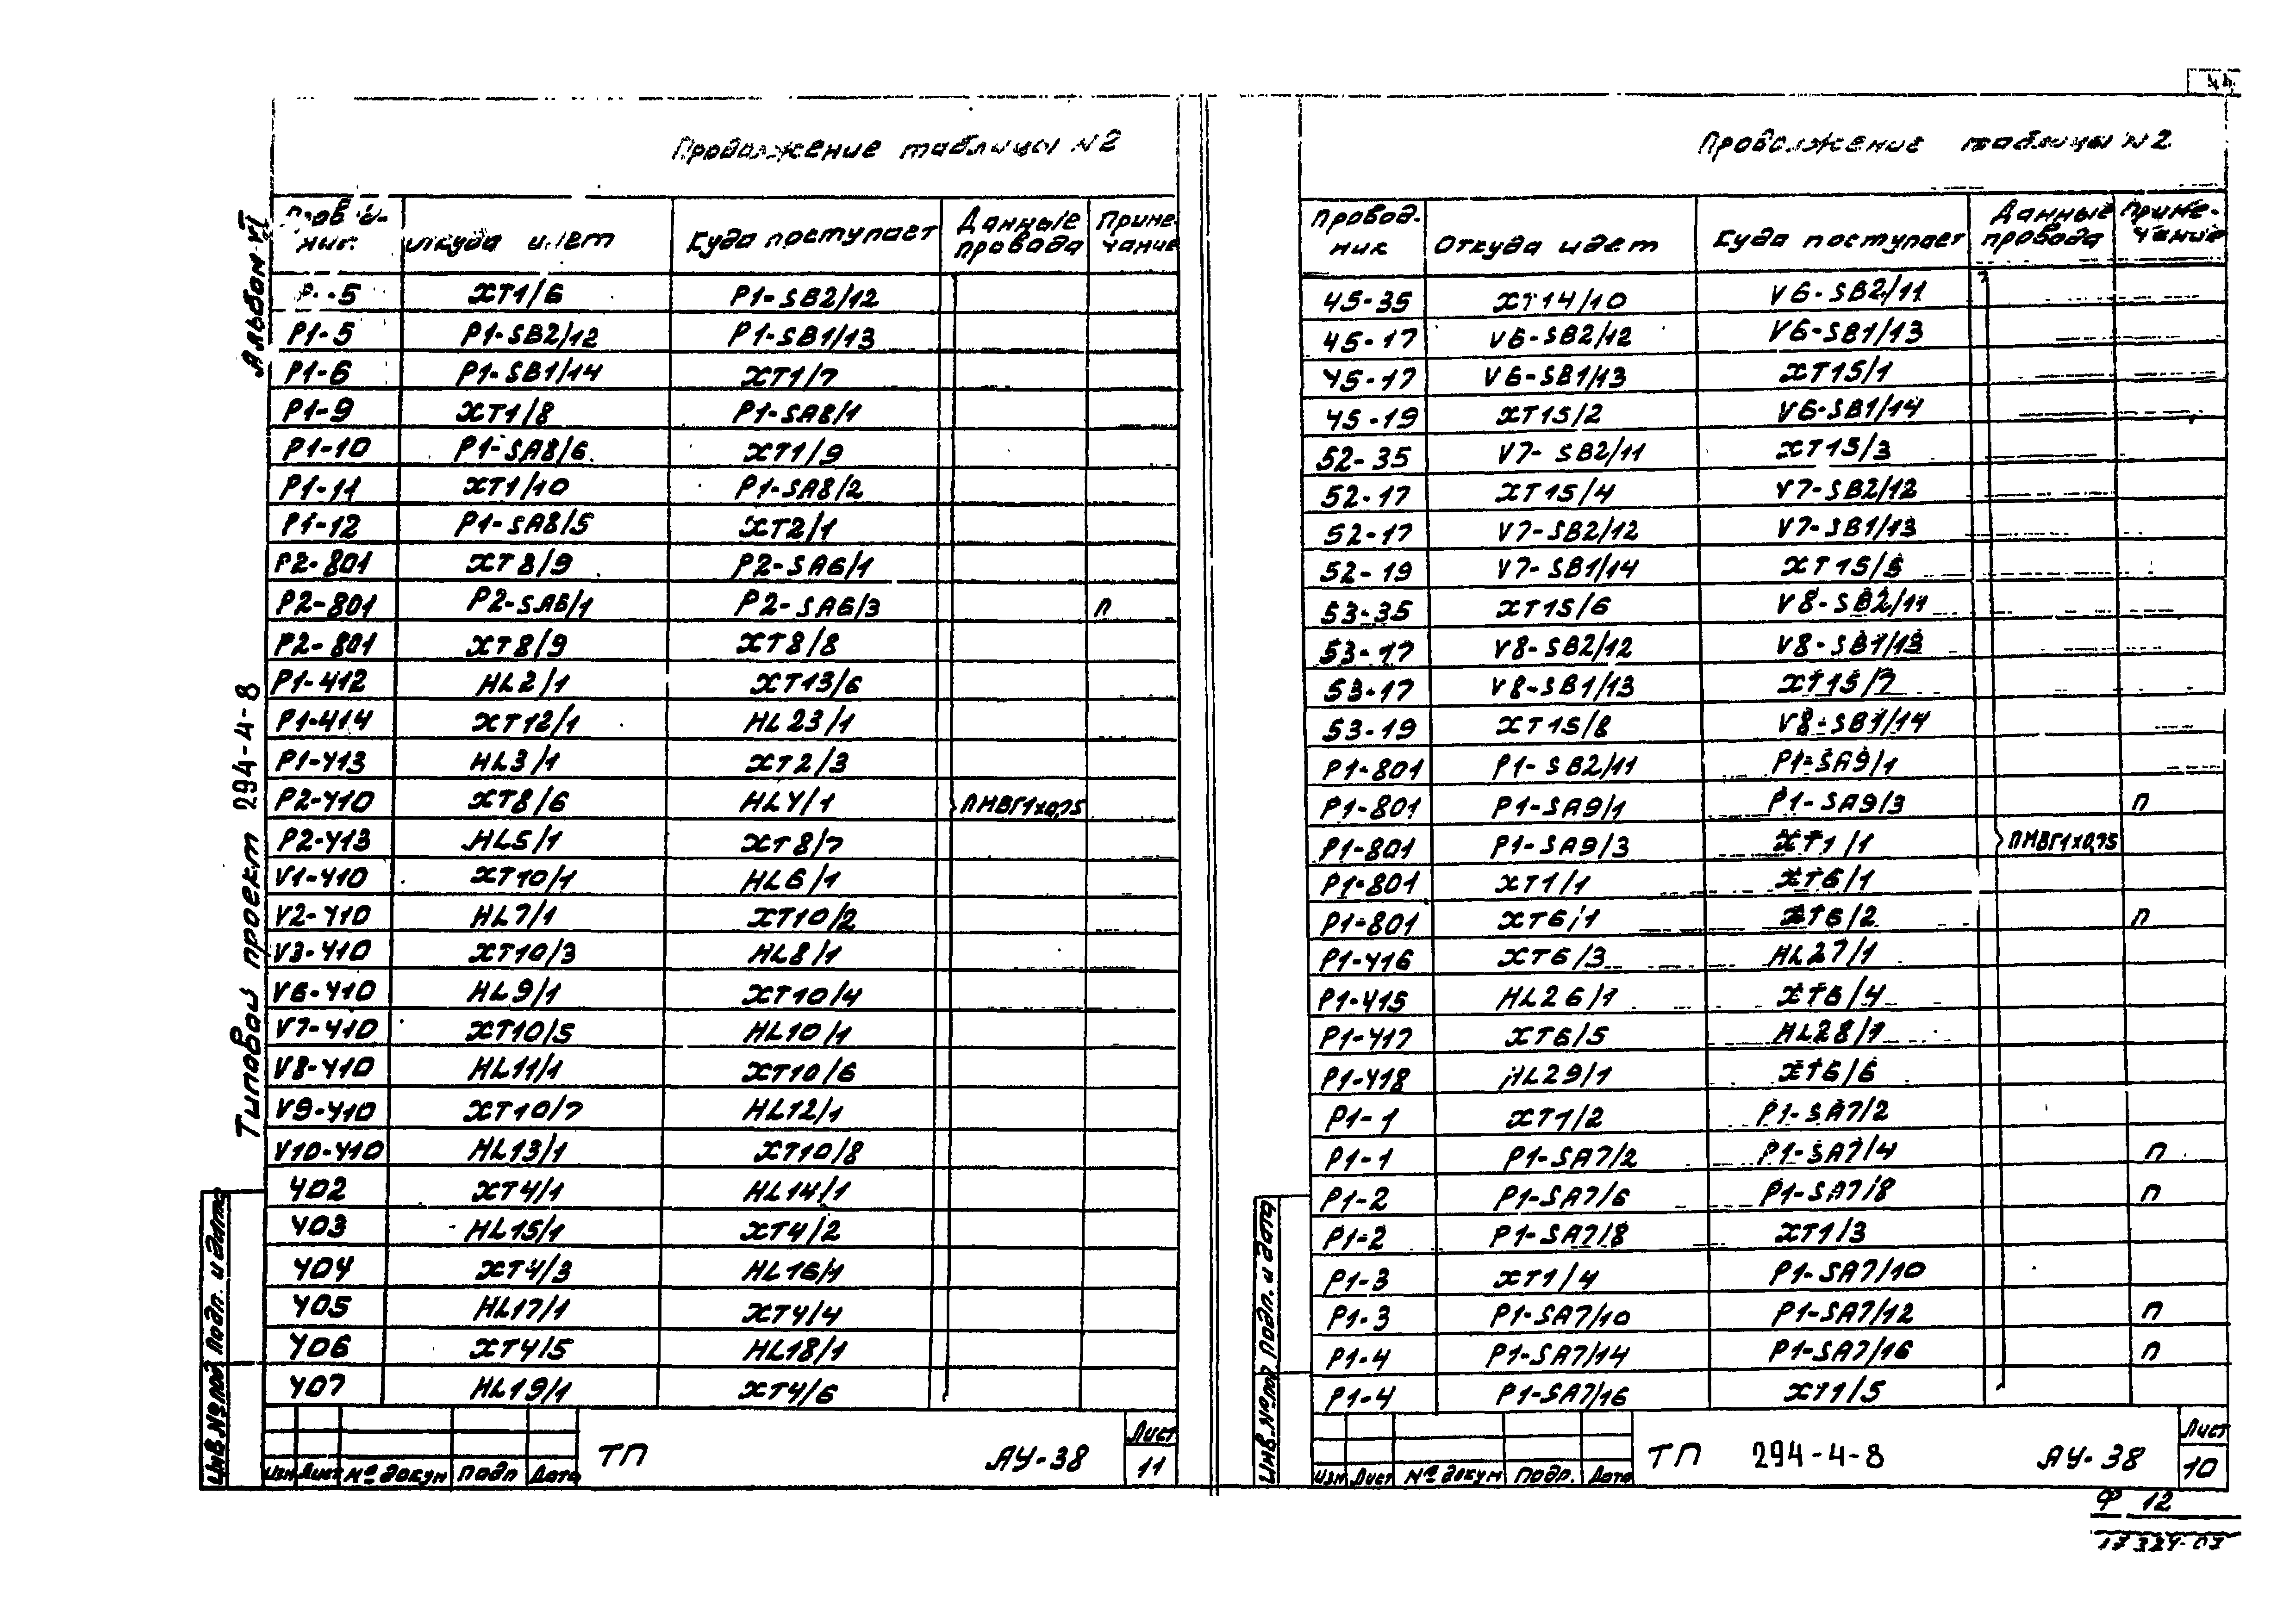 44
Продолжение таблицы N2
Провод-ник Откуда идет Куда поступает Данные провода Приме-чание
-5 XT1/6 P1-SB2/12
P1-5 P1-SB2/12 P1-SB1/13
P1-6 P1-SB1/14 XT1/7
P1-9 XT1/8 P1-SA8/1
P1-10 P1-SA8/6 XT1/9
P1-11 XT1/10 P1-SA8/2
P1-12 P1-SA8/5 XT2/1
P2-801 XT8/9 P2-SA6/1
P2-801 P2-SA6/1 P2-SA6/3 п
P2-801 XT8/9 XT8/8
P1-412 HL2/1 XT13/6
P1-414 XT12/1 HL23/1
P1-413 HL3/1 XT2/3
P2-410 XT8/6 HL4/1 ПМВГ1х0,75
P2-413 HL5/1 XT8/7
V1-410 XT10/1 HL6/1
V2-410 HL7/1 XT10/2
V3-410 XT10/3 HL8/1
V6-410 HL9/1 XT10/4
V7-410 XT10/5 HL10/1
V8-410 HL11/1 XT10/6
V9-410 XT10/7 HL12/1
V10-410 HL13/1 XT10/8
402 XT4/1 HL14/1
403 HL15/1 XT4/2
404 XT4/3 HL16/1
405 HL17/1 XT4/4
406 XT4/5 HL18/1
407 HL19/1 XT4/6
Изм Лист № докум Подп Дата
ТП АУ-38
Лист
11
Альбом VI
Типовой проект 294-4-8
Инв.№ под Подп. и дата
Продолжение таблицы N2
Провод-ник Откуда идет Куда поступает Данные провода Приме-чание
45-35 XT14/10 V6-SB2/11
45-17 V6-SB2/12 V6-SB1/13
45-17 V6-SB1/13 XT15/1
45-19 XT15/2 V6-SB1/14
52-35 V7-SB2/11 XT15/3
52-17 XT15/4 V7-SB2/12
52-17 V7-SB2/12 V7-SB1/13
52-19 V7-SB1/14 XT15/5
53-35 XT15/6 V8-SB2/11
53-17 V8-SB2/12 V8-SB1/13
53-17 V8-SB1/13 XT15/7
53-19 XT15/8 V8-SB1/14
P1-801 P1-SB2/11 P1-SA9/1
P1-801 P1-SA9/1 P1-SA9/3 п
P1-801 P1-SA9/3 XT1/1 ПМВГ1х0,75
P1-801 XT1/1 XT6/1
P1-801 XT6/1 XT6/2 п
P1-416 XT6/3 HL27/1
P1-415 HL26/1 XT6/4
P1-417 XT6/5 HL28/1
P1-418 HL29/1 XT6/6
P1-1 XT1/2 P1-SA7/2
P1-1 P1-SA7/2 P1-SA7/4 п
P1-2 P1-SA7/6 P1-SA7/8 п
P1-2 P1-SA7/8 XT1/3
P1-3 XT1/4 P1-SA7/10
P1-3 P1-SA7/10 P1-SA7/12 п
P1-4 P1-SA7/14 P1-SA7/16 п
P1-4 P1-SA7/16 XT1/5
Изм Лист № докум Подп. Дата
ТП 294-4-8 АУ-38
Лист
10
Инв.№ под Подп. и дата
Ф 12
17324-07